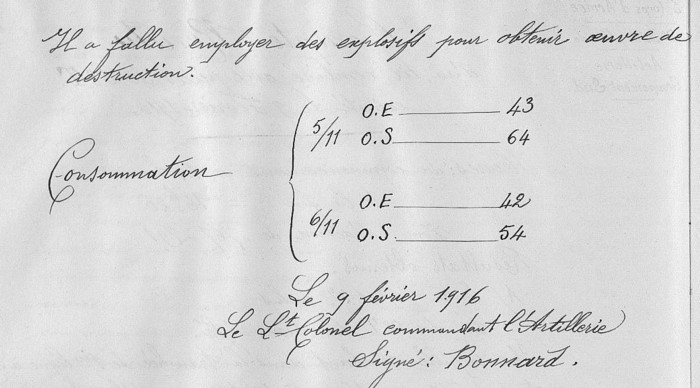 Il a fallu employer des explosifs pour obtenir œuvre de
destruction.
Consommation
5/11 O.E 43
O.S 64
6/11 O.E 42
O.S. 54
Le 9 février 1916
Le Lt Colonel commandant l'Artillerie
Signé : Bonnard.